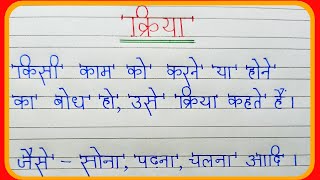 'क्रिया'
'किसी' काम' को' करने' 'या' होने'
का' बोध' हो', उसे' 'क्रिया' कहते' हैं।
जैसे' – सोना', 'पढना', चलना' आदि।